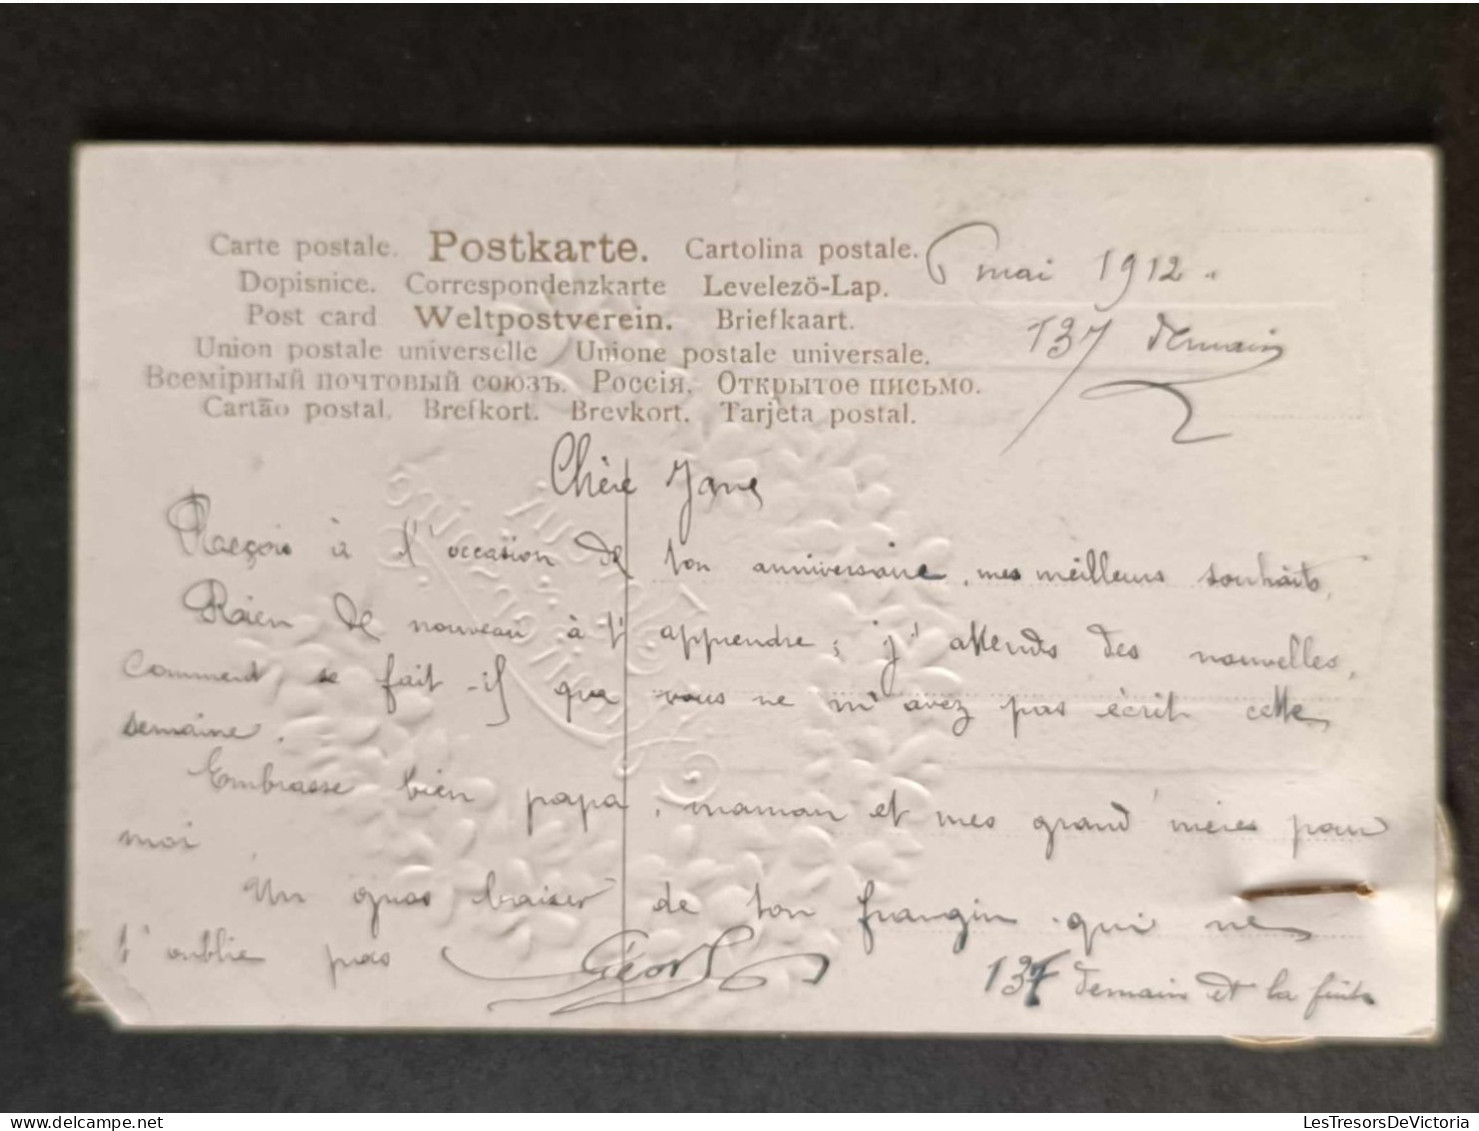 Carte postale. Postkarte. Cartolina postale.
Dopisnice. Correspondenzkarte Levelezö-Lap.
Post card Weltpostverein. Briefkaart.
Union postale universelle Unione postale universale.
Всемірный почтовый союзъ. Россія. Открытое письмо.
Cartão postal. Brefkort. Brevkort. Tarjeta postal.
6 mai 1912.
137 demain
Chère Jane
Reçois à l'occasion de ton anniversaire, mes meilleurs souhaits,
Rien de nouveau à t'apprendre; j'attends des nouvelles,
Comment se fait-il que vous ne m'avez pas écrit cette
semaine.
Embrasse bien papa, maman et mes grand'mères pour
moi
Un gros baiser de ton frangin qui ne
t'oublie pas
137 demain et la fuite
LesTresorsDeVictoria
LesTresorsDeVictoria.com